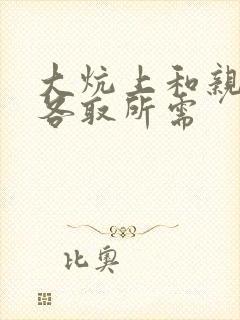 大炕上和亲
各取所需
比奥